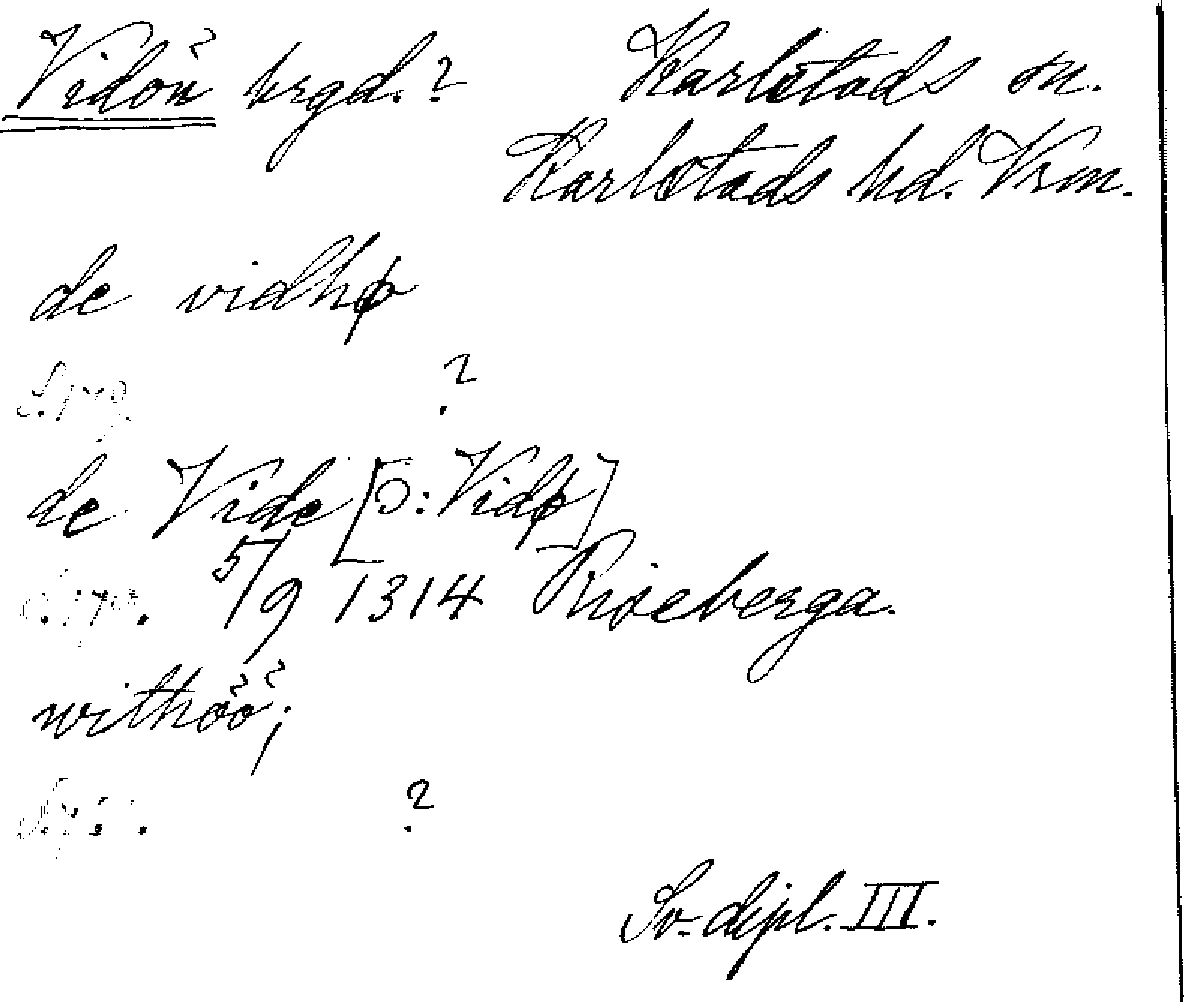 Vidön brgd.? Karlstads sn.
Karlstads hd. Vrm.
de vidhø
?
de Vide [ɔ: Vidø]
5/9 1314 Riseberga.
withöö;
?
Sv. dipl. III.